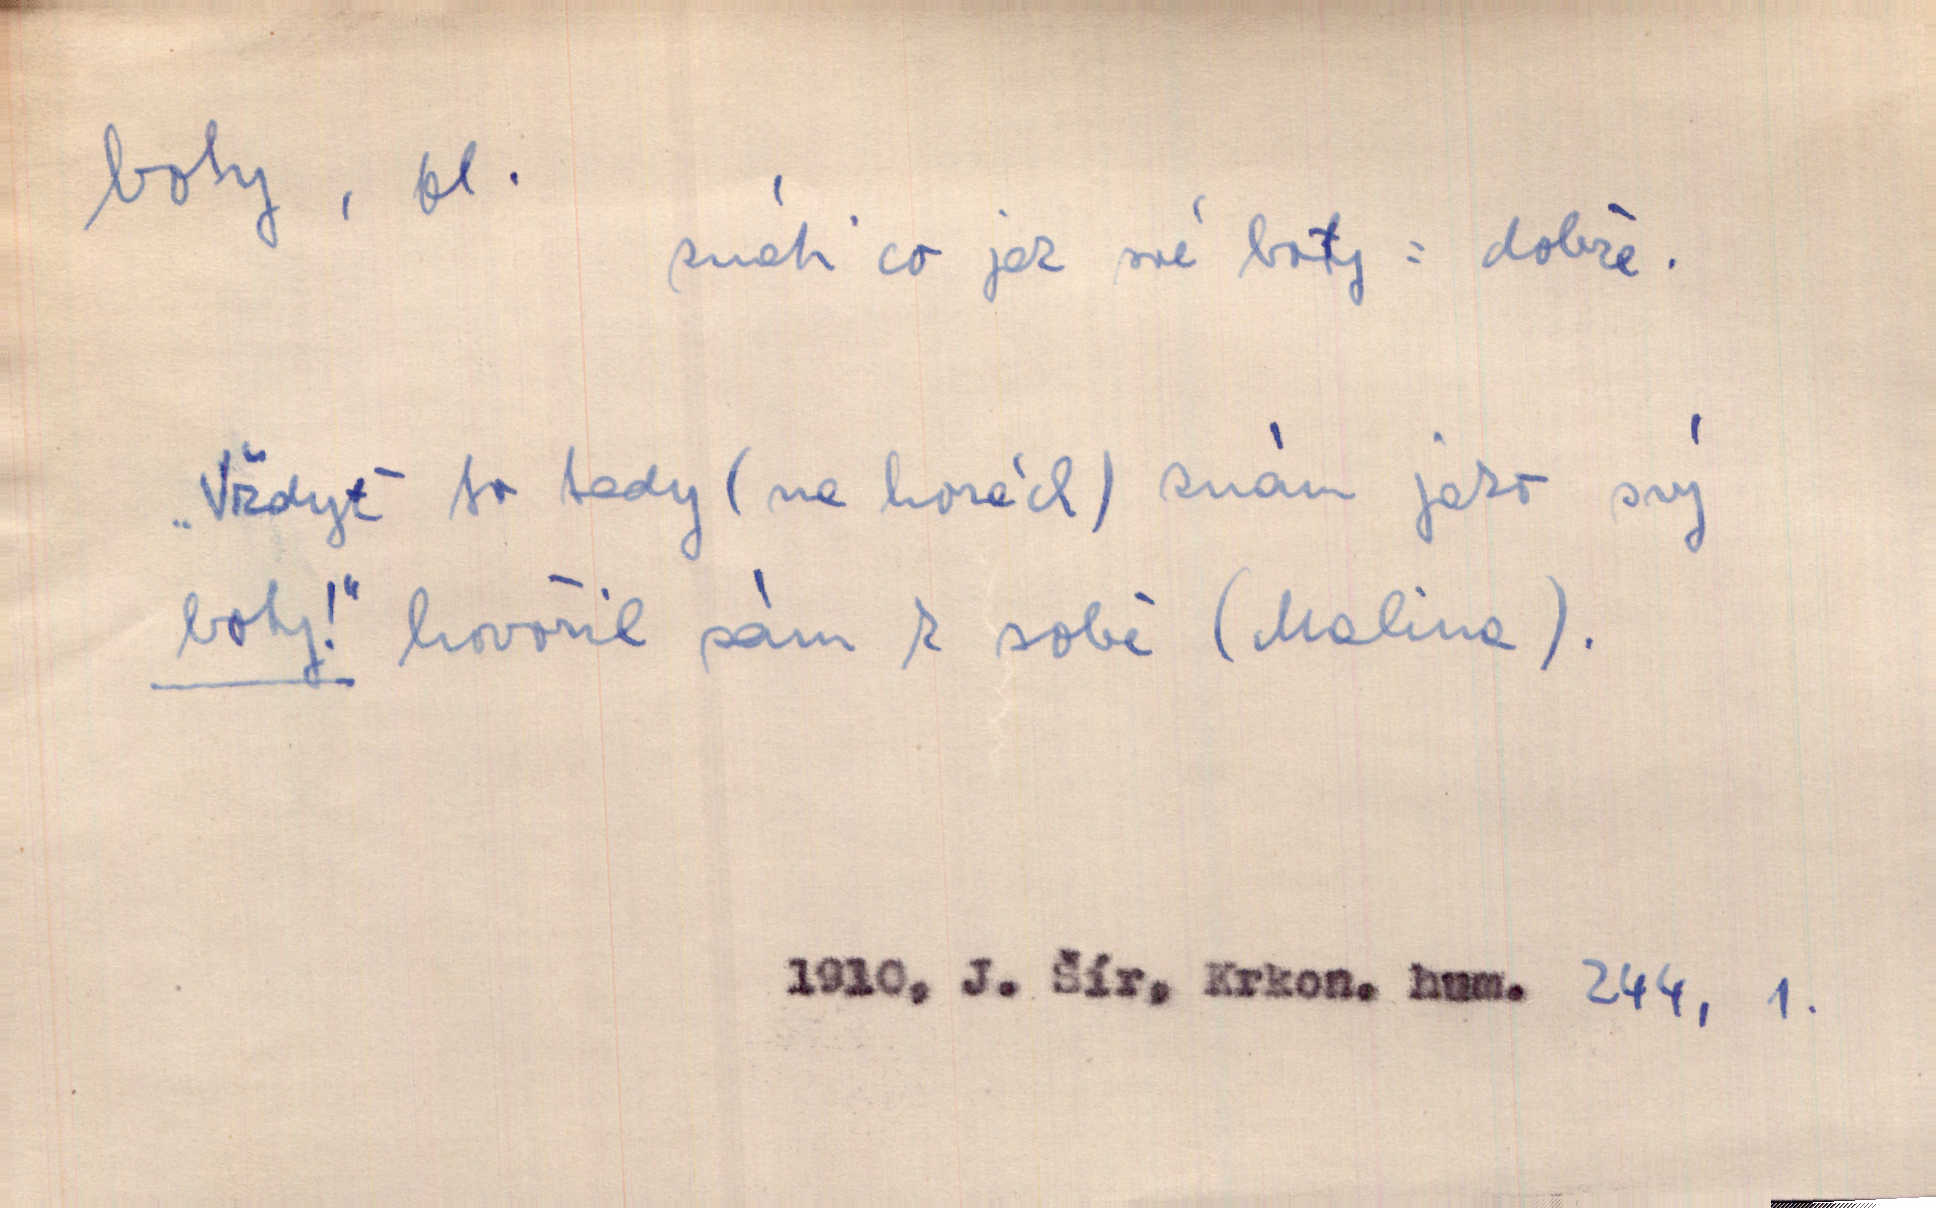 boty, pl.
znáti co jak své boty = dobře.
„Vždyť to tady (na horách) znám jako svý
boty!“ hovořil sám k sobě (Malina).
1910, J. Šír, Krkon. hum. 244, 1.